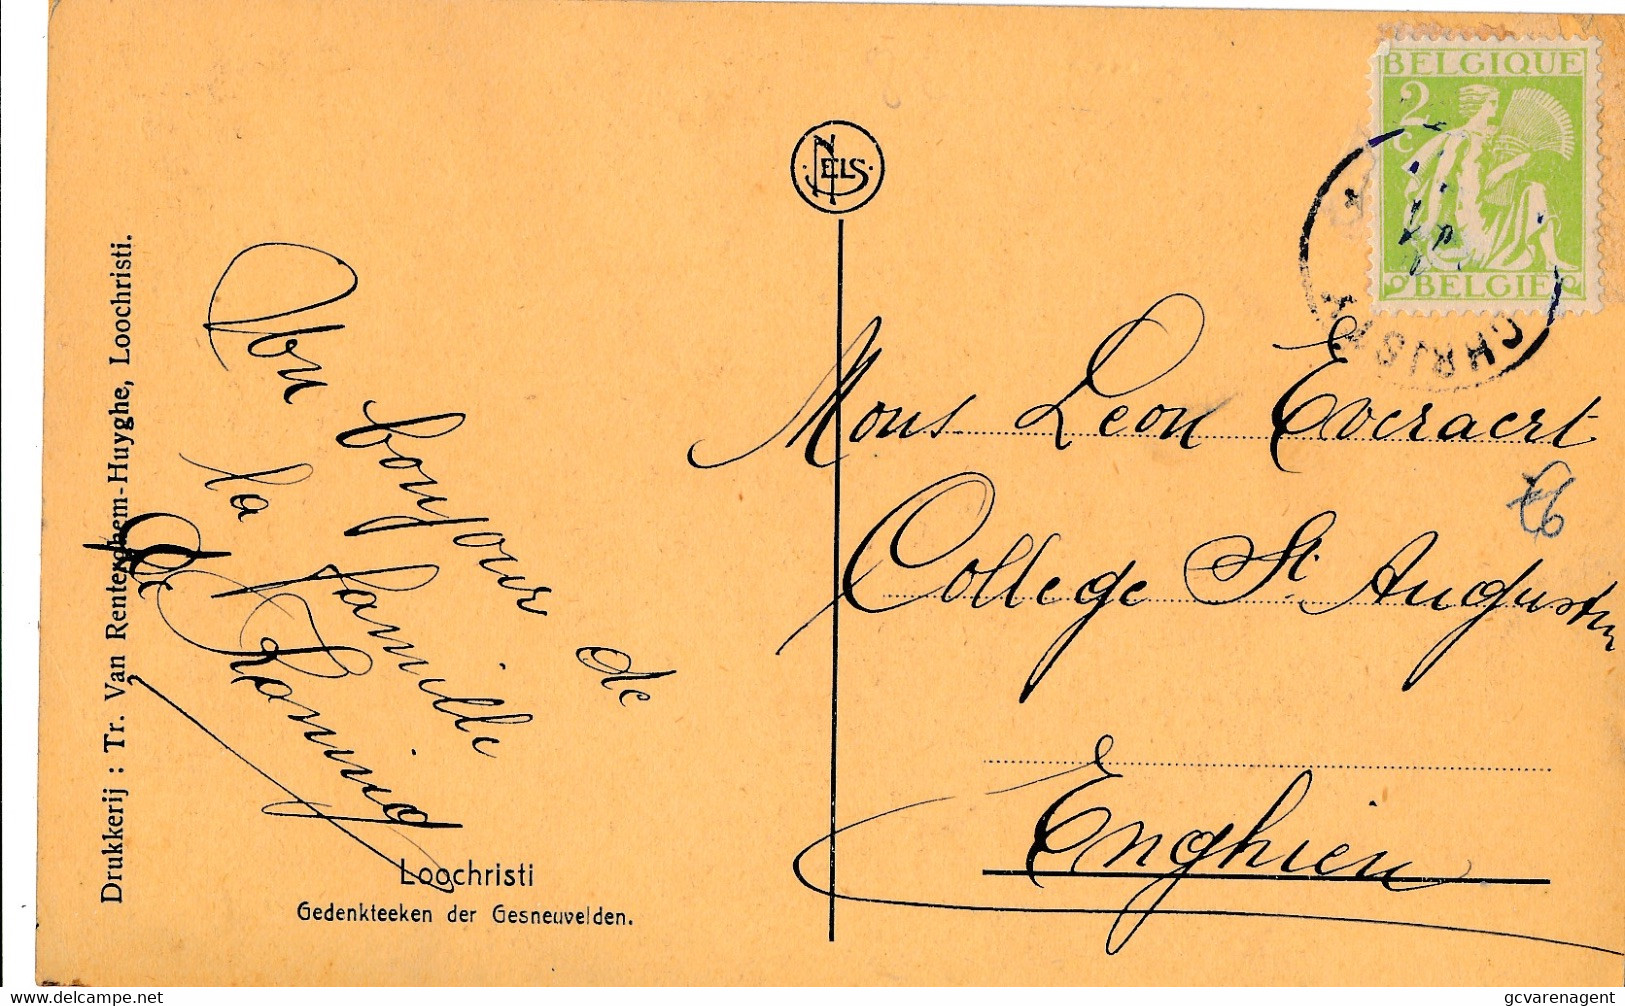 BELGIQUE
2
C
BELGIE
CHRISTI
NELS
Drukkerij : Tr. Van Renterghem-Huyghe, Loochristi.
Un bonjour de
la famille
De
Mons Leon Everaert
College St Augustin
Enghien
Loochristi
Gedenkteeken der Gesneuvelden.
https://www.delcampe.net
gcvarenagent